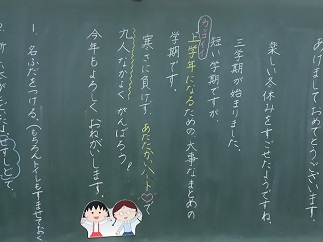 あけましておめでとうございます。
楽しい冬休みをすごせたようですね。
三学期が始まりました。
短い学期ですが、
カッコイイ
上学年になるための大事なまとめの
学期です。
寒さに負けず、あたたかハート
九人なかよくがんばろう!
今年もよろしくおねがいします。
1. 名ふだをつける。(もちろん、トイレもすませておく